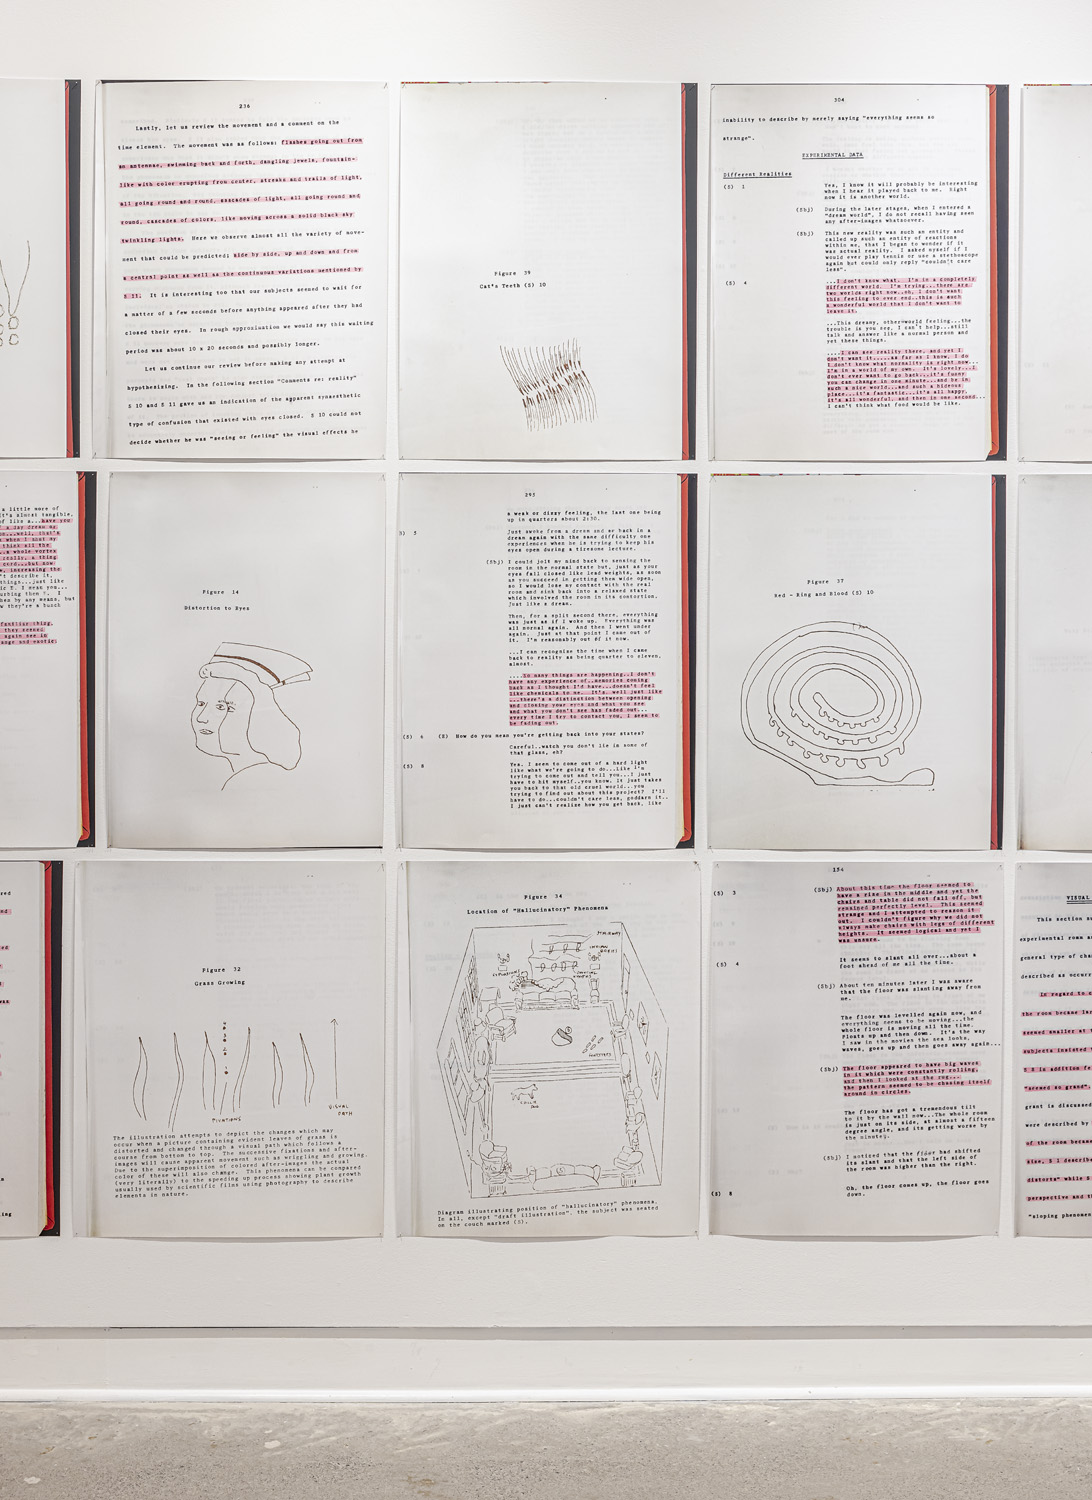 236
Lastly, let us review the movement and a comment on the
time element. The movement was as follows: flashes going out from
an antennae, swimming back and forth, dangling jewels, fountain-
like with color erupting from center, streaks and trails of light,
all going round and round, cascades of light, all going round and
round, cascades of colors, like moving across a solid black sky
twinkling lights. Here we observe almost all the variety of move-
ment that could be predicted; side by side, up and down and from
a central point as well as the continuous variations mentioned by
S 11. It is interesting too that our subjects seemed to wait for
a matter of a few seconds before anything appeared after they had
closed their eyes. In rough approximation we would say this waiting
period was about 10 x 20 seconds and possibly longer.
Let us continue our review before making any attempt at
hypothesizing. In the following section "Comments re: reality"
S 10 and S 11 gave us an indication of the apparent synaesthetic
type of confusion that existed with eyes closed. S 10 could not
decide whether he was "seeing or feeling" the visual effects he
Figure 39
Cat's Teeth (S) 10
304
inability to describe by merely saying "everything seems so
strange".
EXPERIMENTAL DATA
Different Realities
(S) 1
Yes, I know it will probably be interesting
when I hear it played back to me. Right
now it is another world.
(Sbj) During the later stages, when I entered a
"dream world", I do not recall having seen
any after-images whatsoever.
(Sbj) This new reality was such an entity and
called up such an entity of reactions
within me, that I began to wonder if it
was actual reality. I asked myself if I
would ever play tennis or use a stethoscope
again but could only reply "couldn't care
less".
(S) 4
...I don't know what. I'm in a completely
different world. I'm trying...there are
two worlds right now..oh, I don't want
this feeling to ever end..this is such
a wonderful world that I don't want to
leave it.
...This dreamy, otherworld feeling...the
trouble is you see, I can't help...still
talk and answer like a normal person and
yet these things.
....I can see reality there, and yet I
don't want it.....as far as I know, I do
I don't know what normality is right now...
I'm in a world of my own. It's lovely...I
don't ever want to go back...it's funny
you can change in one minute...and be in
such a nice world...and such a hideous
place...it's fantastic...it's all happy,
it's all wonderful, and then in one second...
I can't think what food would be like.
a little more of
it's almost tangible.
of like a...have you
f a day dream my
..well, that's
when I shut my
think all the
..a whole vortex
really, a thing
cord...but now
, increasing the
't describe it,
things...just like
I mean you...
urbing them
hen by any means, but
w they're a bunch
familiar thing,
they seemed
again see in
ange and exotic
Figure 14
Distortion to Eyes
295
a weak or dizzy feeling, the last one being
up in quarters about 2:30.
(S) 5
Just awoke from a dream and am back in a
dream again with the same difficulty one
experiences when he is trying to keep his
eyes open during a tiresome lecture.
(Sbj) I could jolt my mind back to sensing the
room in the normal state but, just as your
eyes fall closed like lead weights, as soon
as you succeed in getting them wide open,
so I would lose my contact with the real
room and sink back into a relaxed state
which involved the room in its contortion.
Just like a dream.
Then, for a split second there, everything
was just as if I woke up. Everything was
all normal again. And then I went under
again. Just at that point I came out of
it. I'm reasonably out of it now.
...I can recognize the time when I came
back to reality as being quarter to eleven,
almost.
....So many things are happening..I don't
have any experience of..memories coming
back as I thought I'd have...doesn't feel
like chemicals to me. It's, well just like
...there's a distinction between opening
and closing your eyes and what you see
and what you don't see has faded out...
every time I try to contact you, I seem to
be fading out.
(S) 6 (E) How do you mean you're getting back into your states?
Careful..watch you don't lie in some of
that glass, eh?
(S) 8
Yes, I seem to come out of a hard light
like what we're going to do...Like I'm
trying to come out and tell you...I just
have to hit myself..you know. It just takes
you back to that old cruel world...you
trying to find out about this project? I'll
have to do...couldn't care less, goddarn it..
I just can't realize how you get back, like
Figure 37
Red - Ring and Blood (S) 10
Figure 32
Grass Growing
FIXATIONS
VISUAL
PATH
The illustration attempts to depict the changes which may
occur when a picture containing evident leaves of grass is
distorted and changed through a visual path which follows a
course from bottom to top. The successive fixations and after-
images will cause apparent movement such as wriggling and growing.
Due to the superimposition of colored after-images the actual
color of these will also change. This phenomena can be compared
(very literally) to the speeding up process showing plant growth
usually used by scientific films using photography to describe
elements in nature.
Figure 34
Location of "Hallucinatory" Phenomena
Diagram illustrating position of "hallucinatory" phenomena.
In all, except "draft illustration", the subject was seated
on the couch marked (S).
154
(S) 3
(Sbj) About this time the floor seemed to
have a rise in the middle and yet the
chairs and table did not fall off, but
remained perfectly level. This seemed
strange and I attempted to reason it
out. I couldn't figure why we did not
always make chairs with legs of different
heights. It seemed logical and yet I
was unsure.
(S) 4
It seems to slant all over...about a
foot ahead of me all the time.
(Sbj) About ten minutes later I was aware
that the floor was slanting away from
me.
The floor was levelled again now, and
everything seems to be moving...the
whole floor is moving all the time.
Floats up and then down. It's the way
I saw in the movies the sea looks,
waves, goes up and then goes away again...
(Sbj) The floor appeared to have big waves
in it which were constantly rolling,
and then I looked at the rug...
the pattern seemed to be chasing itself
around in circles.
The floor has got a tremendous tilt
to it by the wall now...The whole room
is just on its side, at almost a fifteen
degree angle, and its getting worse by
the minute.
(Sbj) I noticed that the floor had shifted
its slant and that the left side of
the room was higher than the right.
(S) 8
Oh, the floor comes up, the floor goes
down.
VISUAL
This section
experimental room a
general type of cha
described as occurr
In regard to
the room became lar
seemed smaller at
subjects insisted
S 8 in addition fe
"seemed so grand".
grant is discussed
were described by
of the room became
size, S 1 describe
distorts" while S
perspective and t
"sloping phenomen